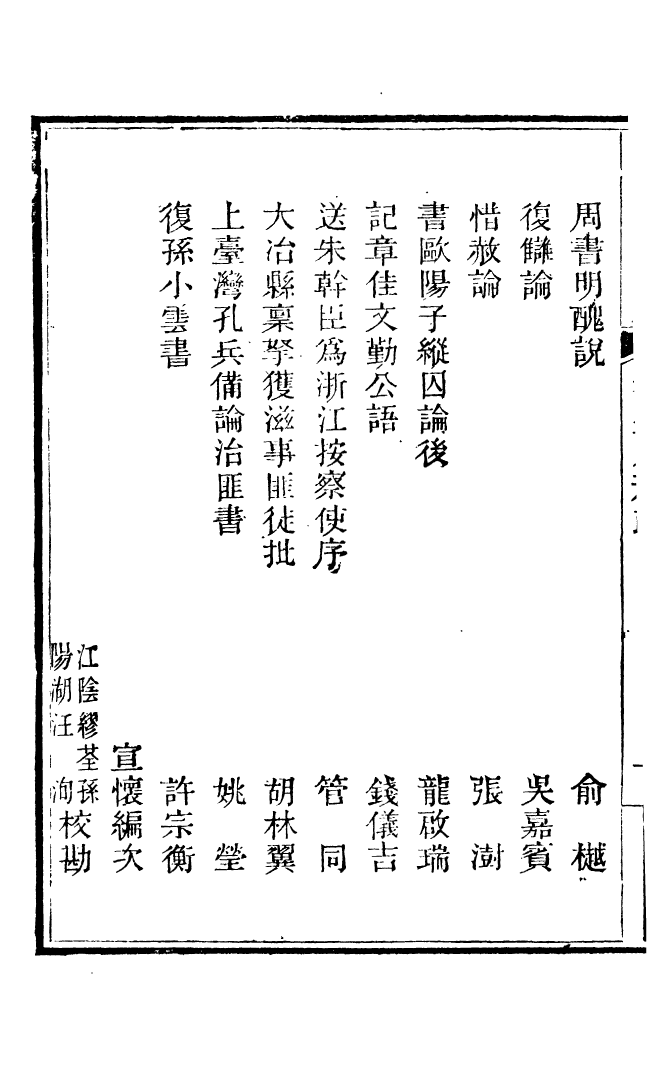 周書明醜說 俞樾
復讎論 吳嘉賓
惜赦論 張澍
書歐陽子縱囚論後 龍啟瑞
記章佳文勤公語 錢儀吉
送朱幹臣爲浙江按察使序 管同
大冶縣稟拏獲滋事匪徒批 胡林翼
上臺灣孔兵備論治匪書 姚瑩
復孫小雲書 許宗衡
宣懷編次
江陰繆荃孫
陽湖汪洵校勘